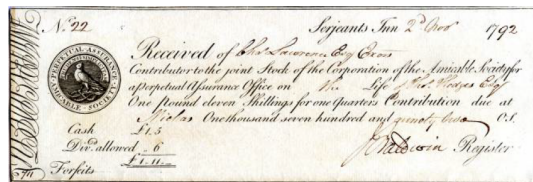 No. 22 Serjeants Inn 2d Novr 1792
PERPETUAL ASSURANCE
AMICABLE SOCIETY
Received of Thos. Lawrence Esq Exors
Contributor to the joint Stock of the Corporation of the Amicable Society for
a Perpetual Assurance Office on the Life of Thos. Hodges Esq
One Pound eleven Shillings for one Quarters Contribution due at
Michas One thousand seven hundred and ninety two O.S.
Cash £1.5
Divd. allowed .. 6
£1.11
Forfeits
Baldwin Register